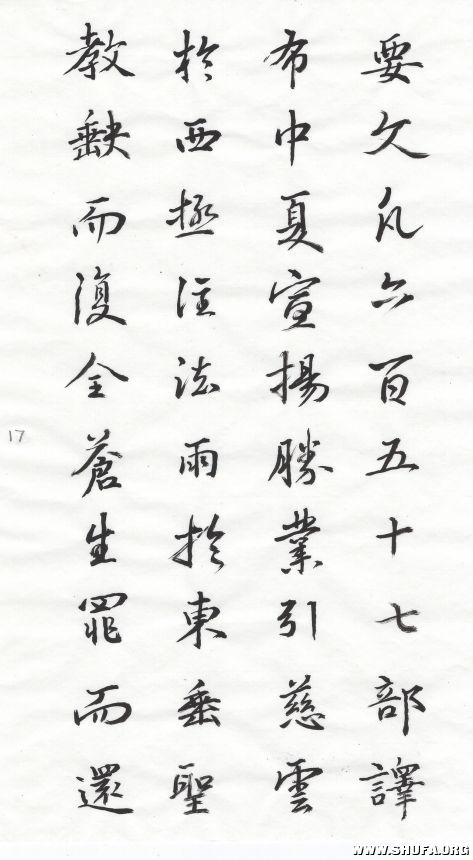 要文凡六百五十七部譯
布中夏宣揚勝業引慈雲
於西極注法雨於東垂聖
教缺而復全蒼生罪而還
17
WWW.SHUFA.ORG